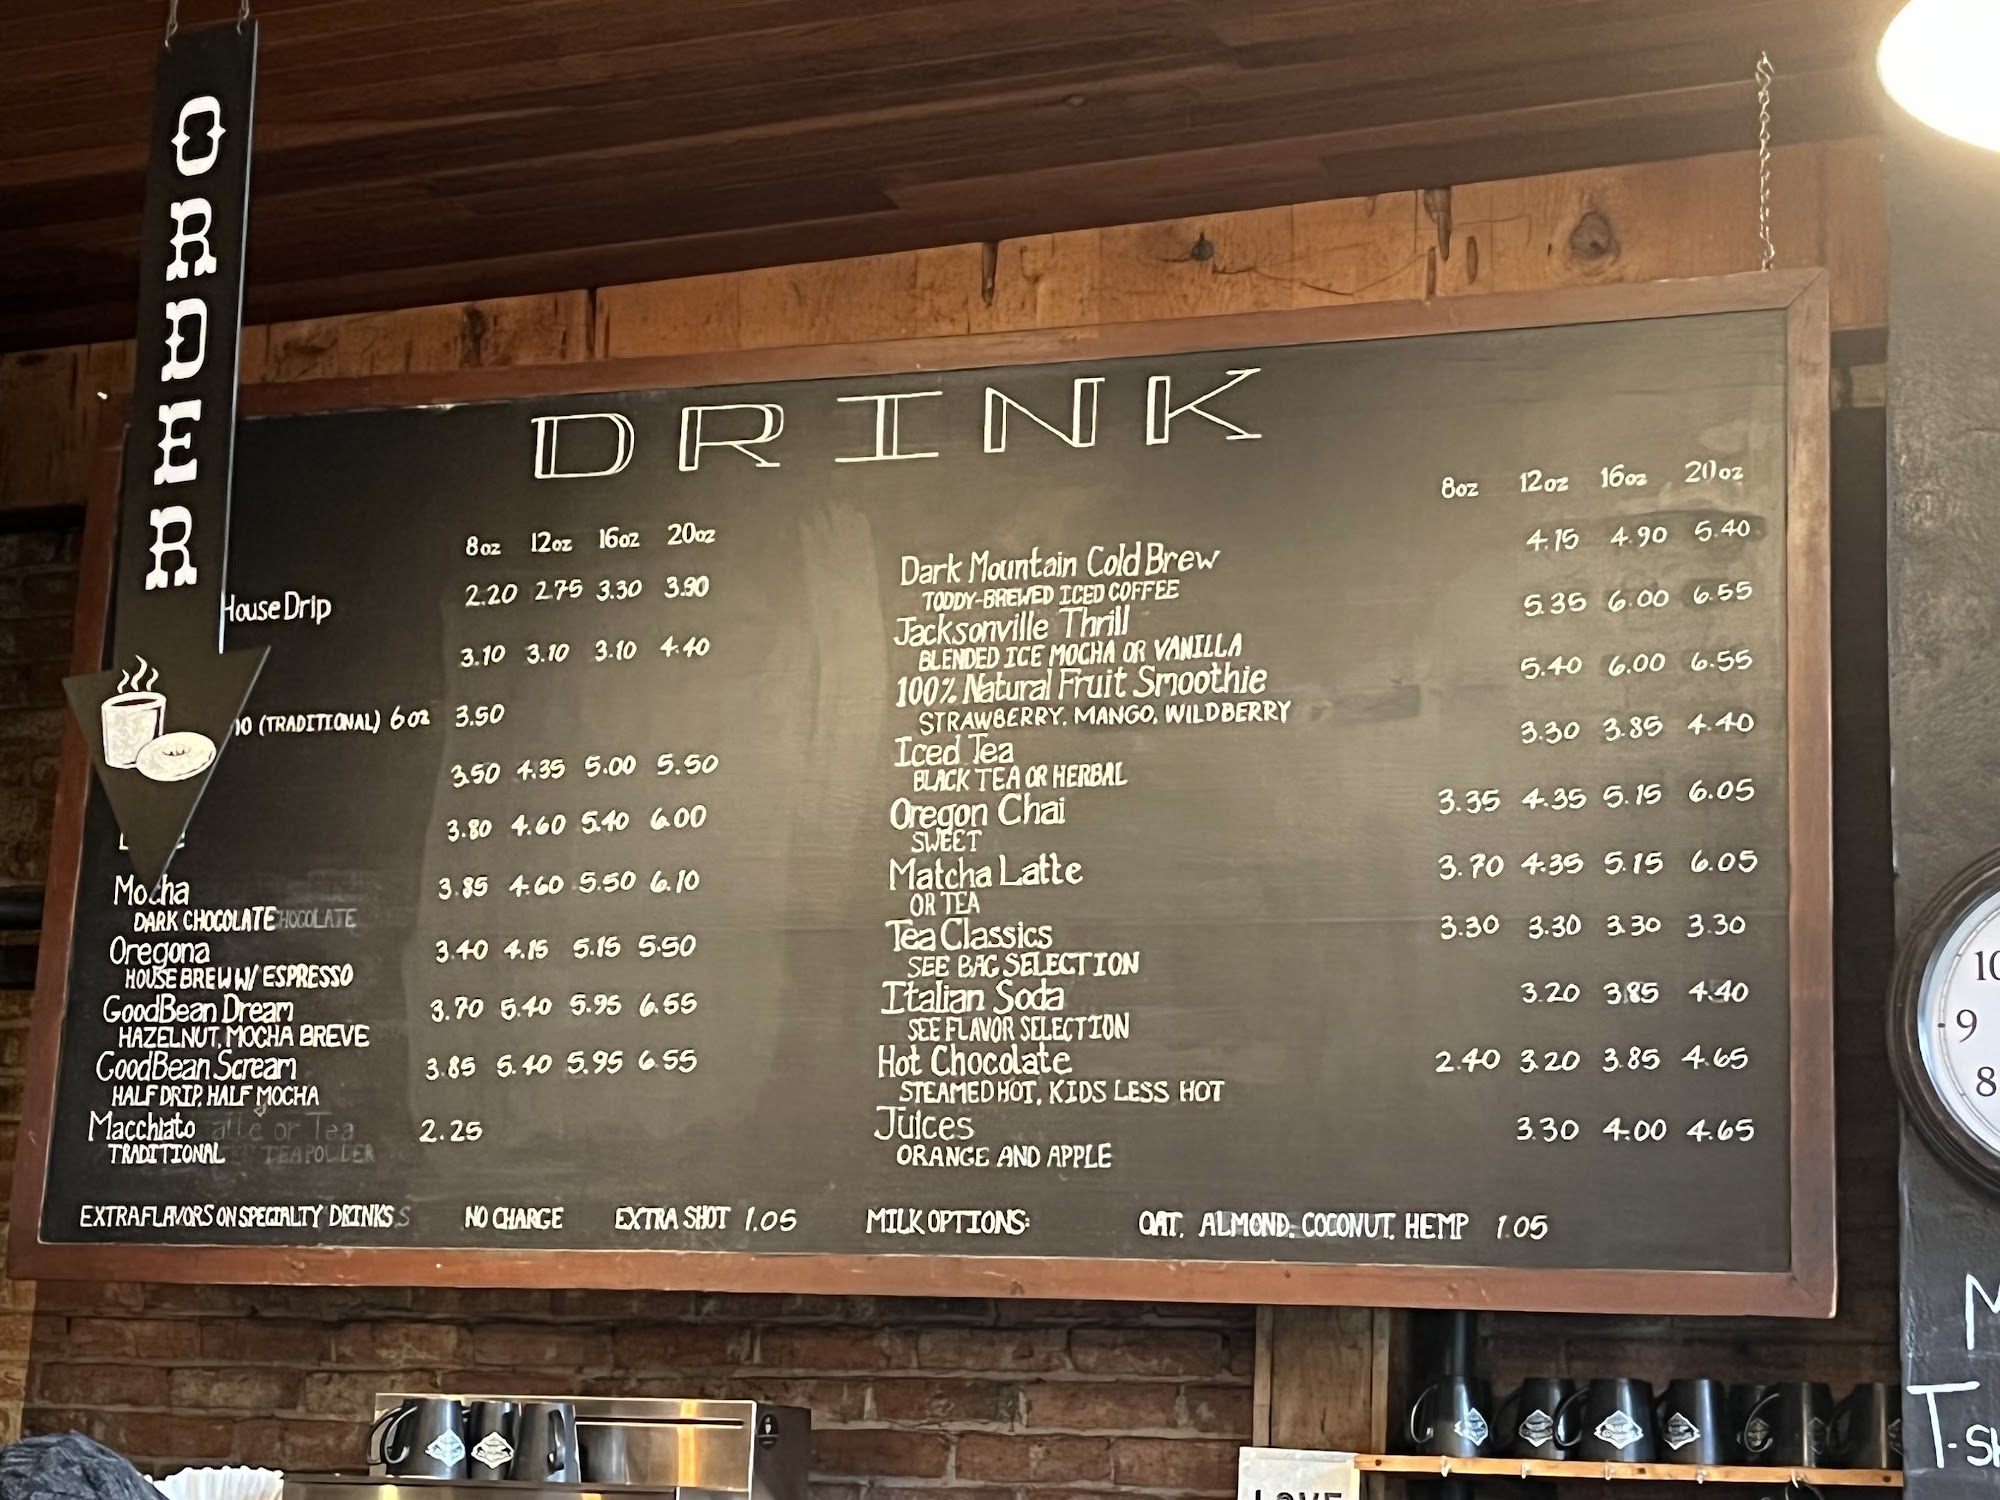 ORDER
DRINK
8oz 12oz 16oz 20oz
House Drip 2.20 2.75 3.30 3.90
3.10 3.10 3.10 4.40
(TRADITIONAL) 6oz 3.50
3.50 4.35 5.00 5.50
3.80 4.60 5.40 6.00
Mocha 3.85 4.60 5.50 6.10
DARK CHOCOLATE
Oregona 3.40 4.15 5.15 5.50
HOUSE BREW W/ ESPRESSO
GoodBean Dream 3.70 5.40 5.95 6.55
HAZELNUT, MOCHA BREVE
GoodBean Scream 3.85 5.40 5.95 6.55
HALF DRIP, HALF MOCHA
Macchiato 2.25
TRADITIONAL
8oz 12oz 16oz 20oz
Dark Mountain Cold Brew 4.15 4.90 5.40
TODDY-BREWED ICED COFFEE
Jacksonville Thrill 5.35 6.00 6.55
BLENDED ICE MOCHA OR VANILLA
100% Natural Fruit Smoothie 5.40 6.00 6.55
STRAWBERRY, MANGO, WILDBERRY
Iced Tea 3.30 3.85 4.40
BLACK TEA OR HERBAL
Oregon Chai 3.35 4.35 5.15 6.05
SWEET
Matcha Latte 3.70 4.35 5.15 6.05
OR TEA
Tea Classics 3.30 3.30 3.30 3.30
SEE BAG SELECTION
Italian Soda 3.20 3.85 4.40
SEE FLAVOR SELECTION
Hot Chocolate 2.40 3.20 3.85 4.65
STEAMED HOT, KIDS LESS HOT
Juices 3.30 4.00 4.65
ORANGE AND APPLE
EXTRA FLAVORS ON SPECIALTY DRINKS NO CHARGE EXTRA SHOT 1.05 MILK OPTIONS: OAT, ALMOND, COCONUT, HEMP 1.05
10
9
8
LOVE